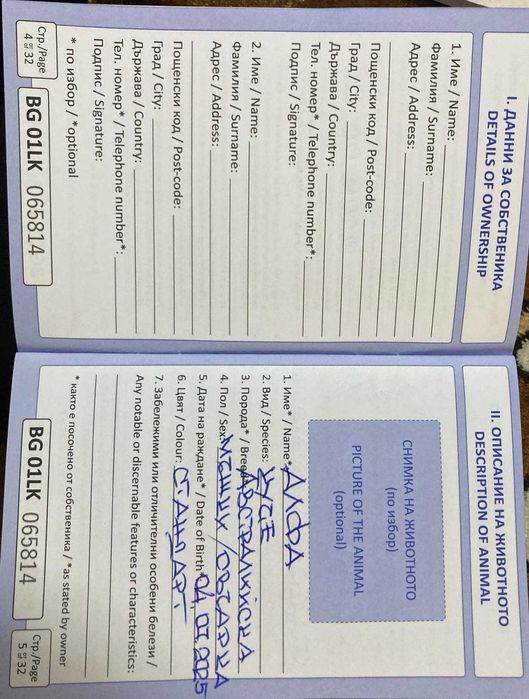 I. ДАННИ ЗА СОБСТВЕНИКА
DETAILS OF OWNERSHIP
1. Име / Name:
Фамилия / Surname:
Адрес / Address:
Пощенски код / Post-code:
Град / City:
Държава / Country:
Тел. номер* / Telephone number*:
Подпис / Signature:
2. Име / Name:
Фамилия / Surname:
Адрес / Address:
Пощенски код / Post-code:
Град / City:
Държава / Country:
Тел. номер* / Telephone number*:
Подпис / Signature:
* по избор / *optional
Стр./Page
4 от 32
BG 01LK 065814
II. ОПИСАНИЕ НА ЖИВОТНОТО
DESCRIPTION OF ANIMAL
СНИМКА НА ЖИВОТНОТО
(по избор)
PICTURE OF THE ANIMAL
(optional)
1. Име* / Name*: АЛФА
2. Вид / Species: КУЧЕ
3. Порода* / Breed АВСТРАЛИЙСКА
4. Пол / Sex: МЪЖКИ / ОВЧАРКА
5. Дата на раждане* / Date of Birth* 04.07.2025
6. Цвят / Colour: СТАНДАРТ
7. Забележими или отличителни особени белези /
Any notable or discernable features or characteristics:
* както е посочено от собственика / *as stated by owner
BG 01LK 065814
Стр./Page
5 от 32